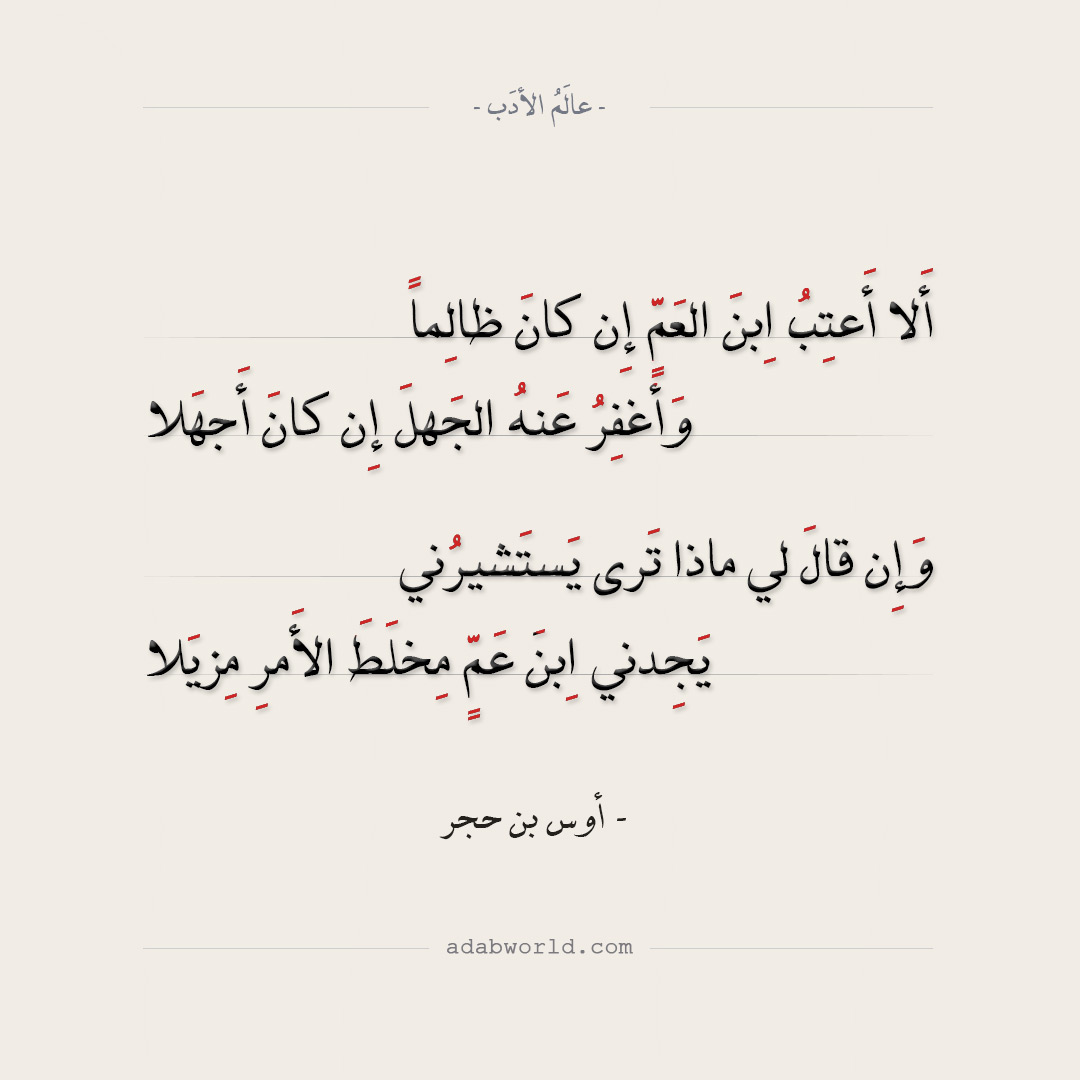 - عالَمُ الأدَب -
أَلا أَعتِبُ اِبنَ العَمِّ إِن كانَ ظالِماً
وَأَغفِرُ عَنهُ الجَهلَ إِن كانَ أَجهَلا
وَإِن قالَ لي ماذا تَرى يَستَشيرُني
يَجِدني اِبنَ عَمٍّ مِخلَطَ الأَمرِ مِزيَلا
- أوس بن حجر
adabworld.com